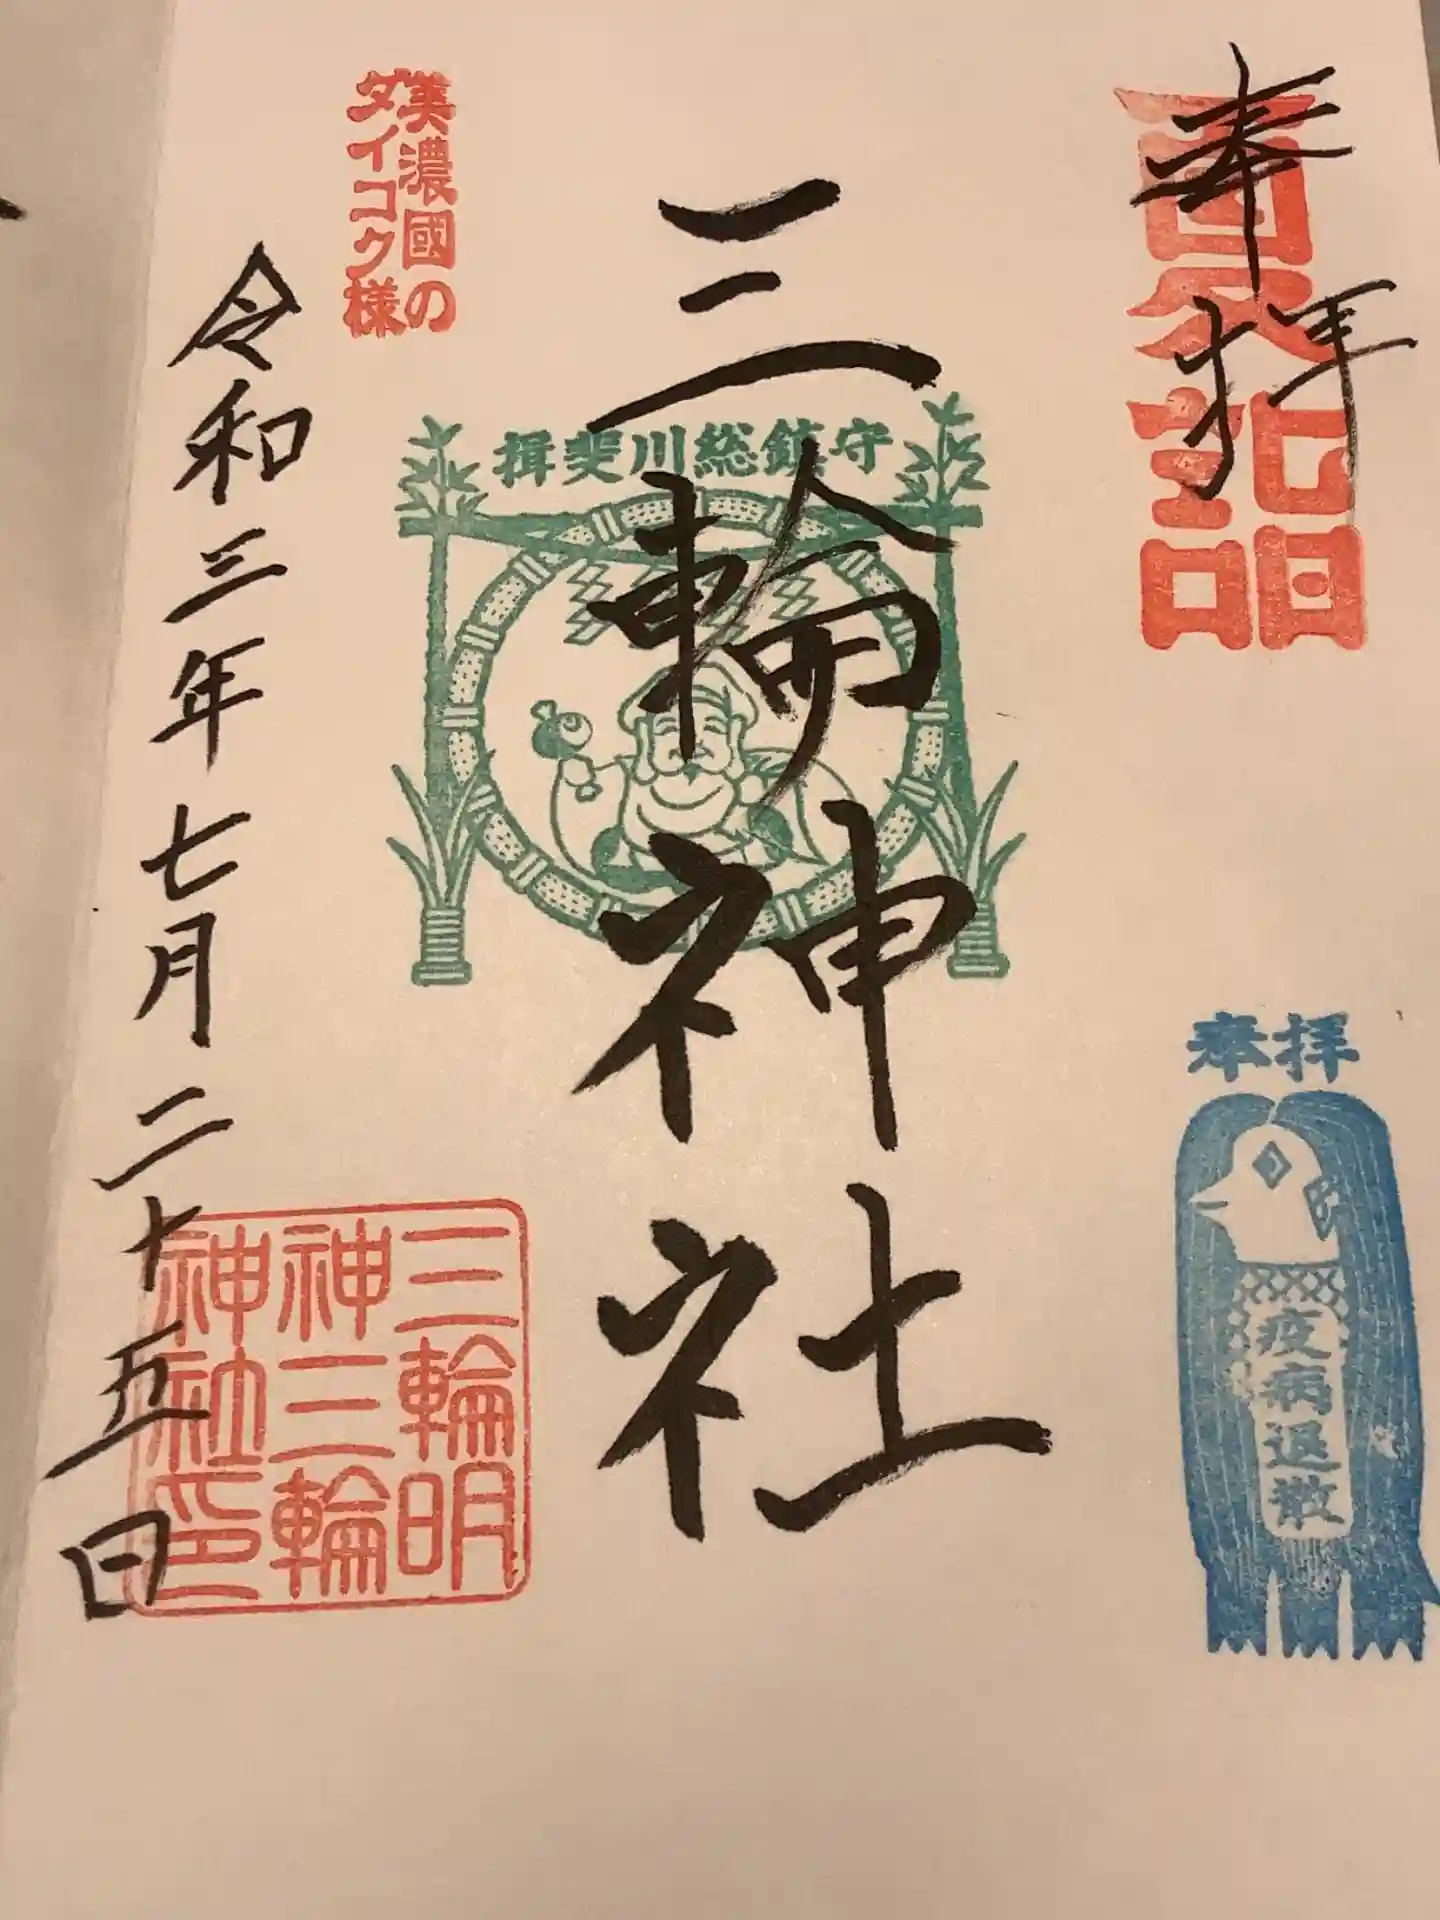 奉拝
夏詣
奉拝
疫病退散
三輪神社
揖斐川総鎮守
美濃國の
ダイコク様
令和三年七月二十五日
三輪明
神三輪
神社印